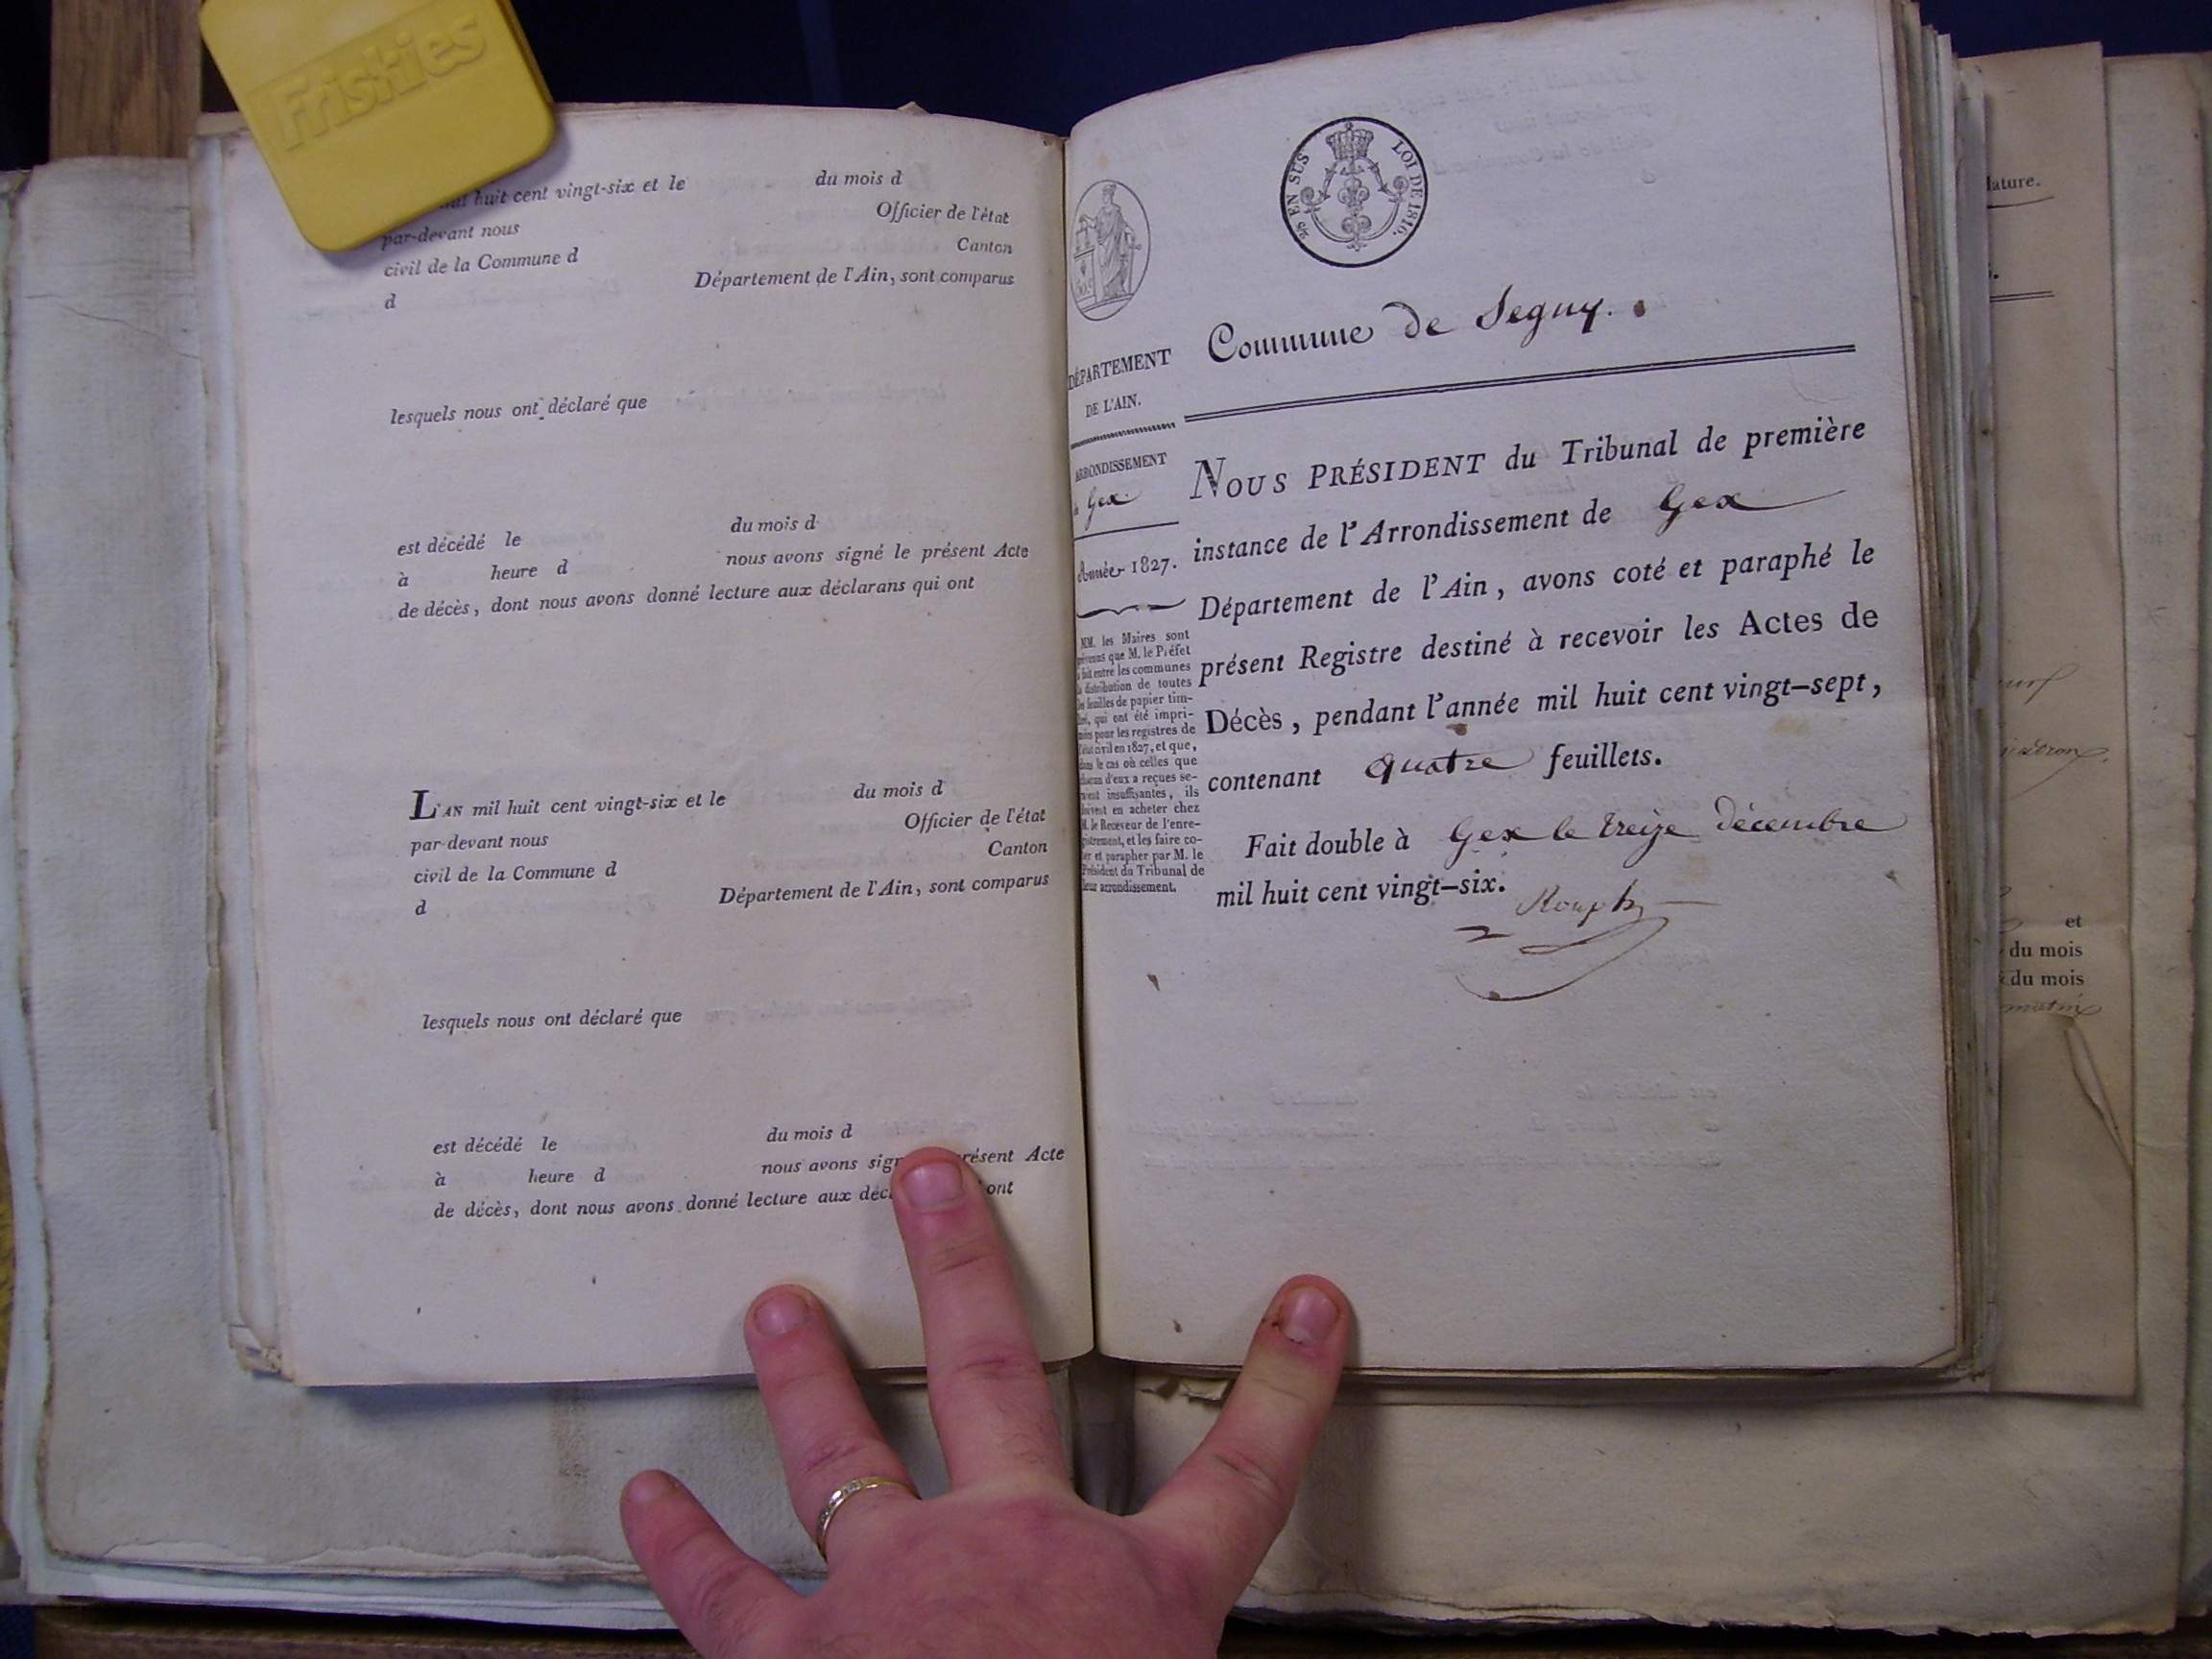 Friskies
huit cent vingt-six et le du mois d
par-devant nous Officier de l'état
civil de la Commune d Canton
d Département de l'Ain, sont comparus
lesquels nous ont déclaré que
est décédé le du mois d
à heure d nous avons signé le présent Acte
de décès, dont nous avons donné lecture aux déclarans qui ont
L'AN mil huit cent vingt-six et le du mois d
par-devant nous Officier de l'état
civil de la Commune d Canton
d Département de l'Ain, sont comparus
lesquels nous ont déclaré que
est décédé le du mois d
à heure d nous avons sign résent Acte
de décès, dont nous avons donné lecture aux déc ont
25c EN SUS LOI DE 1816.
DÉPARTEMENT
DE L'AIN.
ARRONDISSEMENT
Gex
Année 1827.
MM. les Maires sont
prévenus que M. le Préfet
a fait entre les communes
la distribution de toutes
les feuilles de papier tim-
bré, qui ont été impri-
mées pour les registres de
l'état civil en 1827, et que,
dans le cas où celles que
chacun d'eux a reçues se-
raient insuffisantes, ils
doivent en acheter chez
M. le Receveur de l'enre-
gistrement, et les faire co-
ter et parapher par M. le
Président du Tribunal de
leur arrondissement.
Commune de Segny.
NOUS PRÉSIDENT du Tribunal de première
instance de l'Arrondissement de Gex
Département de l'Ain, avons coté et paraphé le
présent Registre destiné à recevoir les Actes de
Décès, pendant l'année mil huit cent vingt-sept,
contenant quatre feuillets.
Fait double à Gex le treize décembre
mil huit cent vingt-six.
lature.
et
du mois
du mois
matin